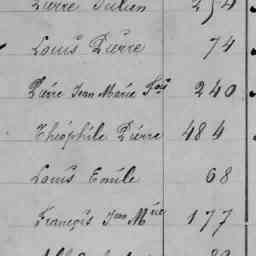 Pierre Julien 254
Louis Pierre 74
Pierre Jean Marie Fois 240
Théophile Pierre 484
Louis Emile 68
François Jean Mie 177